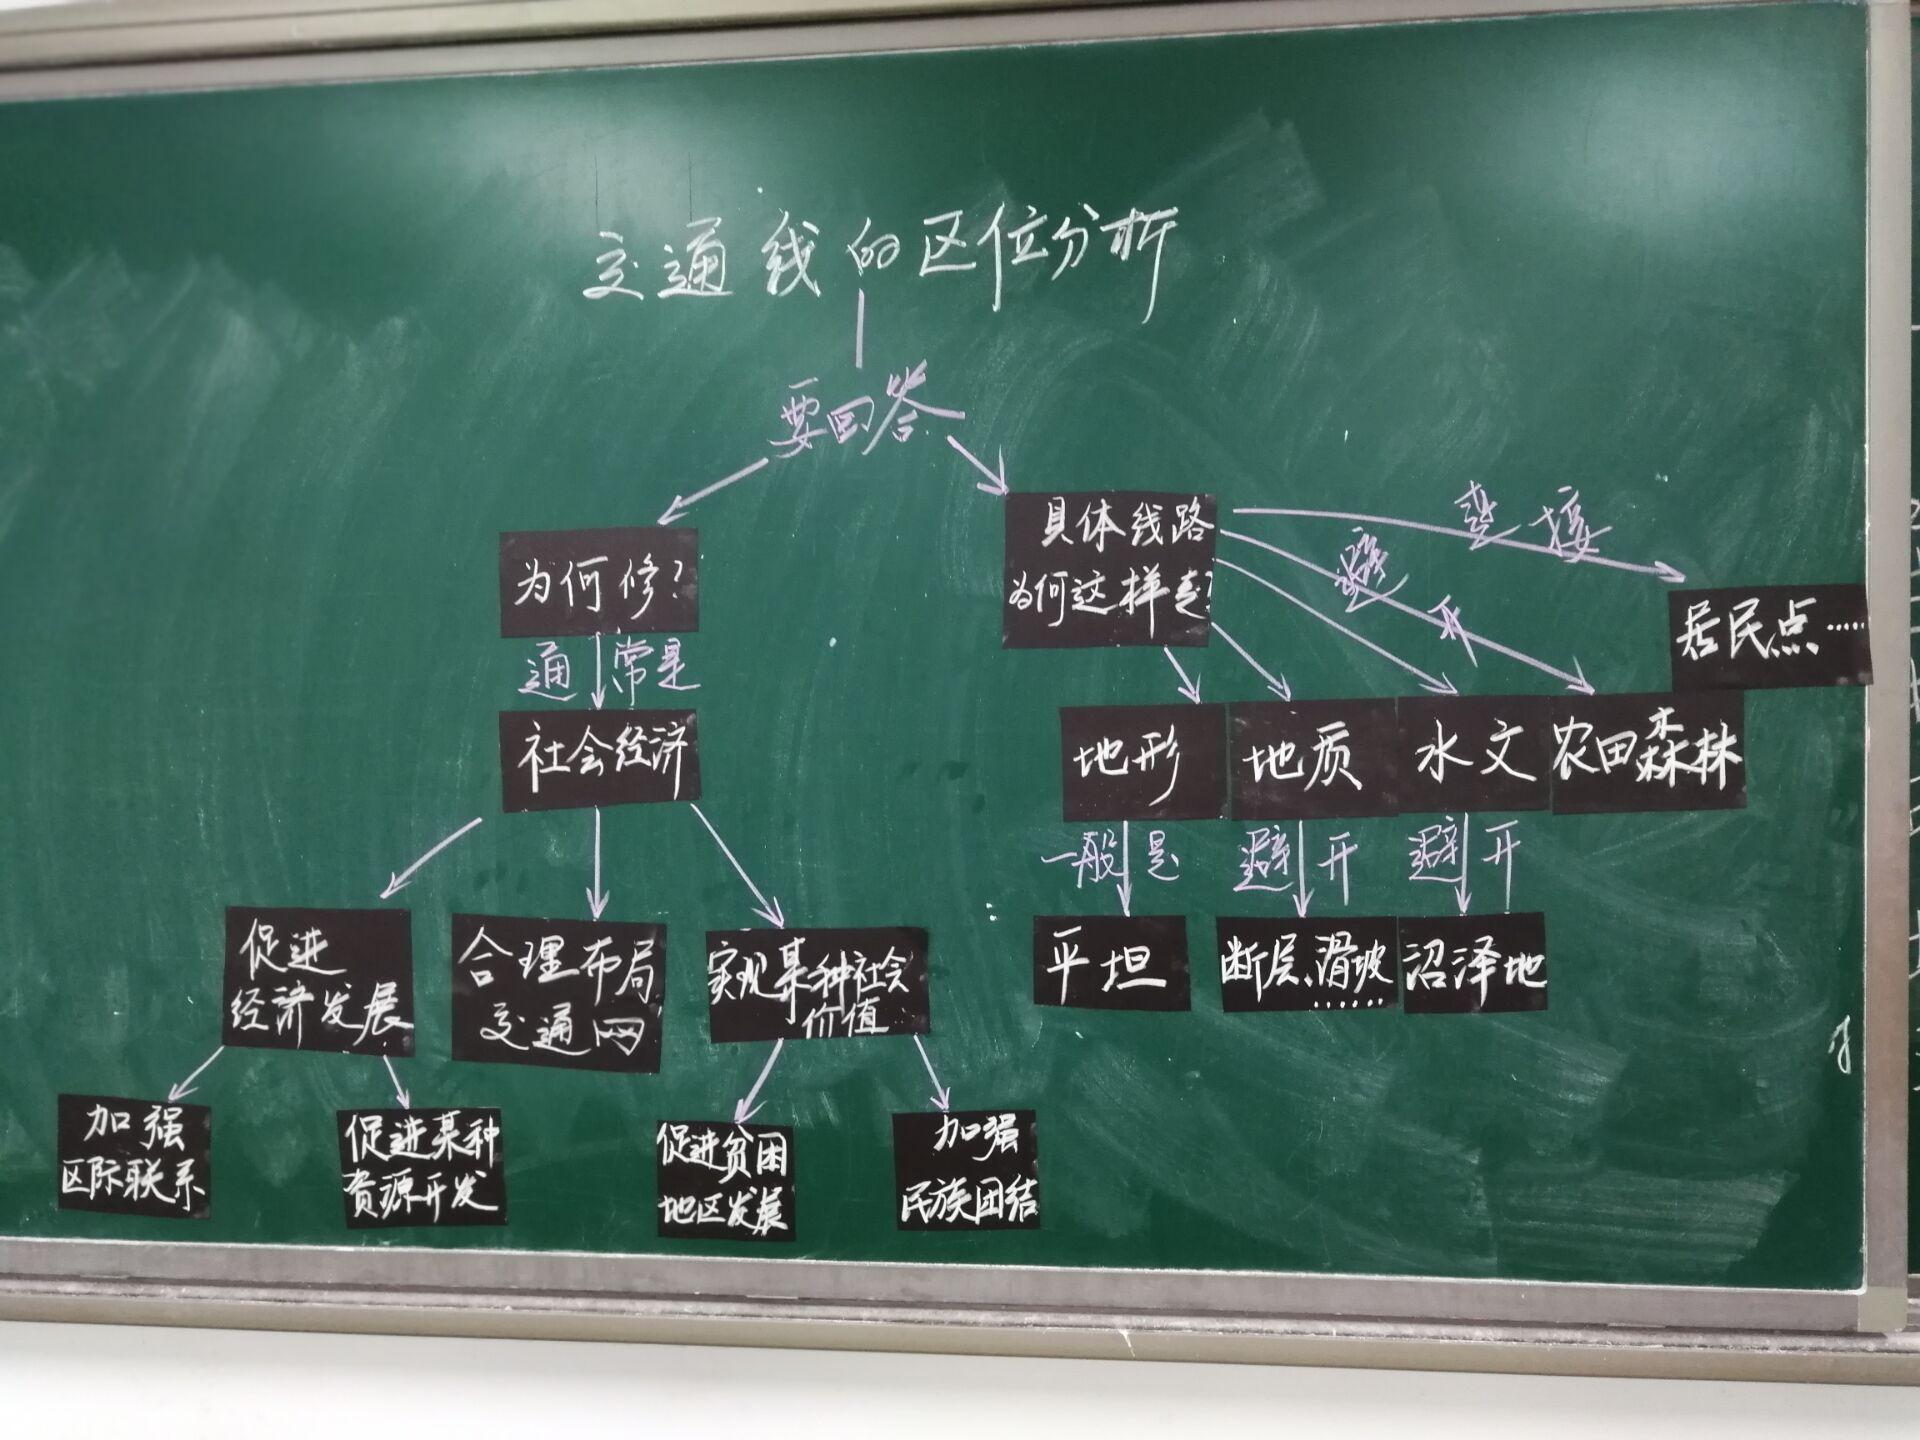 交通线的区位分析
要回答
为何修？
具体线路
为何这样走？
连接
避开
居民点……
通常是
社会经济
地形
地质
水文
农田森林
一般是
避开
避开
促进
经济发展
合理布局
交通网
实现某种社会
价值
平坦
断层、滑坡
……
沼泽地
加强
区际联系
促进某种
资源开发
促进贫困
地区发展
加强
民族团结